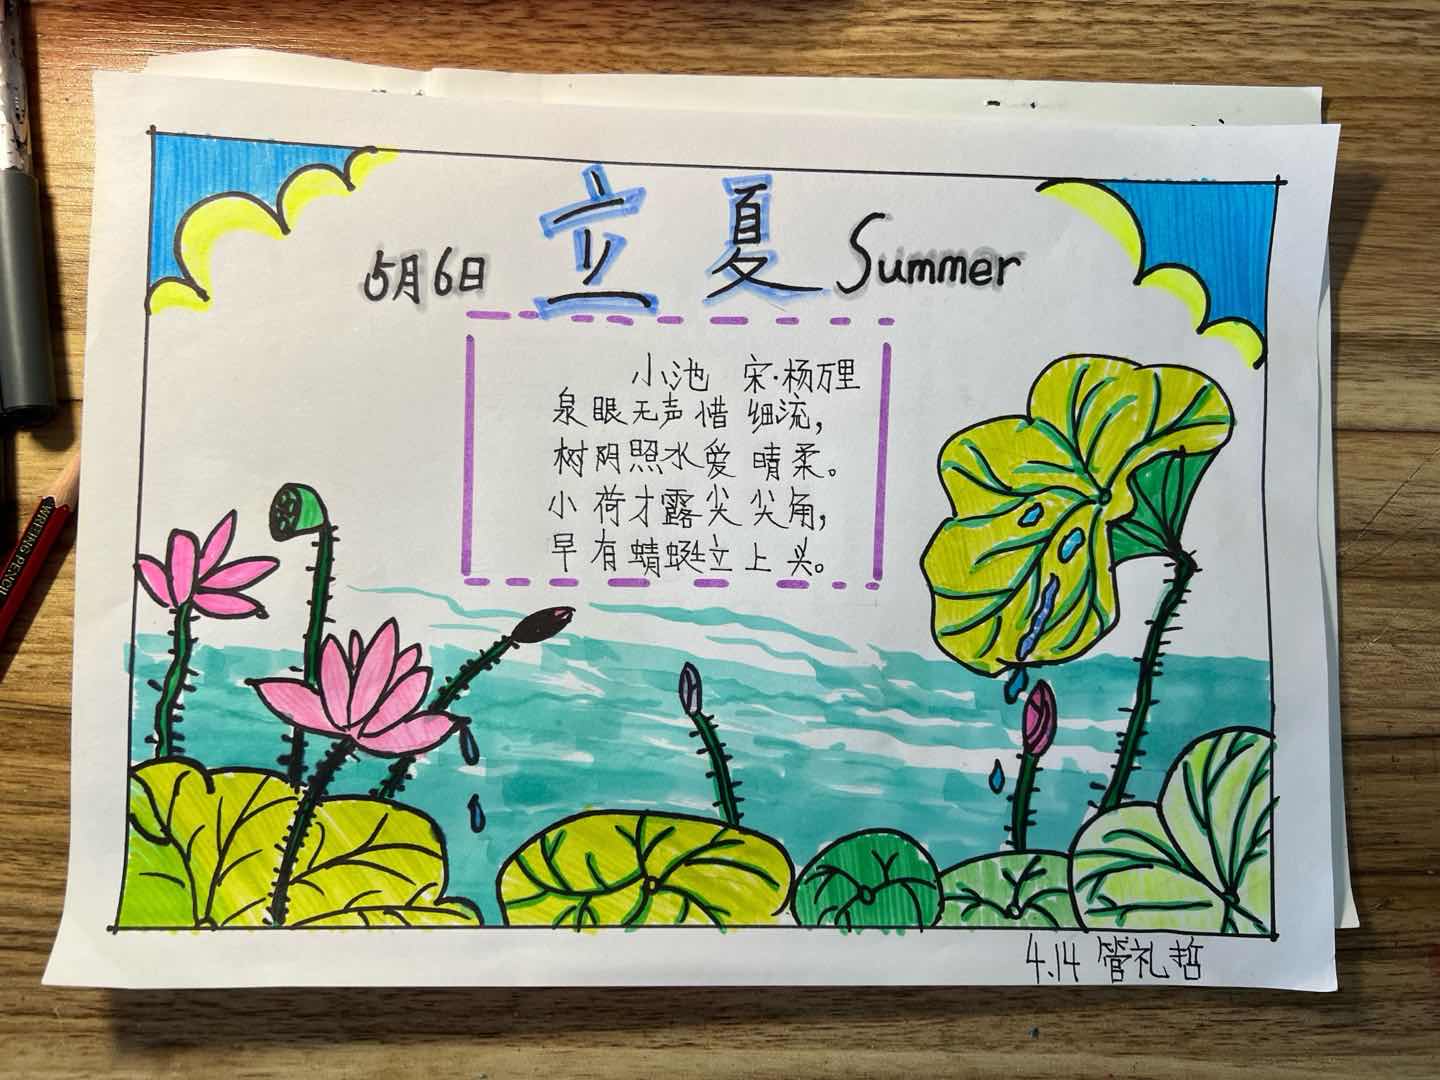 5月6日 立夏 Summer
小池 宋·杨万里
泉眼无声惜细流，
树阴照水爱晴柔。
小荷才露尖尖角，
早有蜻蜓立上头。
4.14 管礼哲
WRITING PENCIL